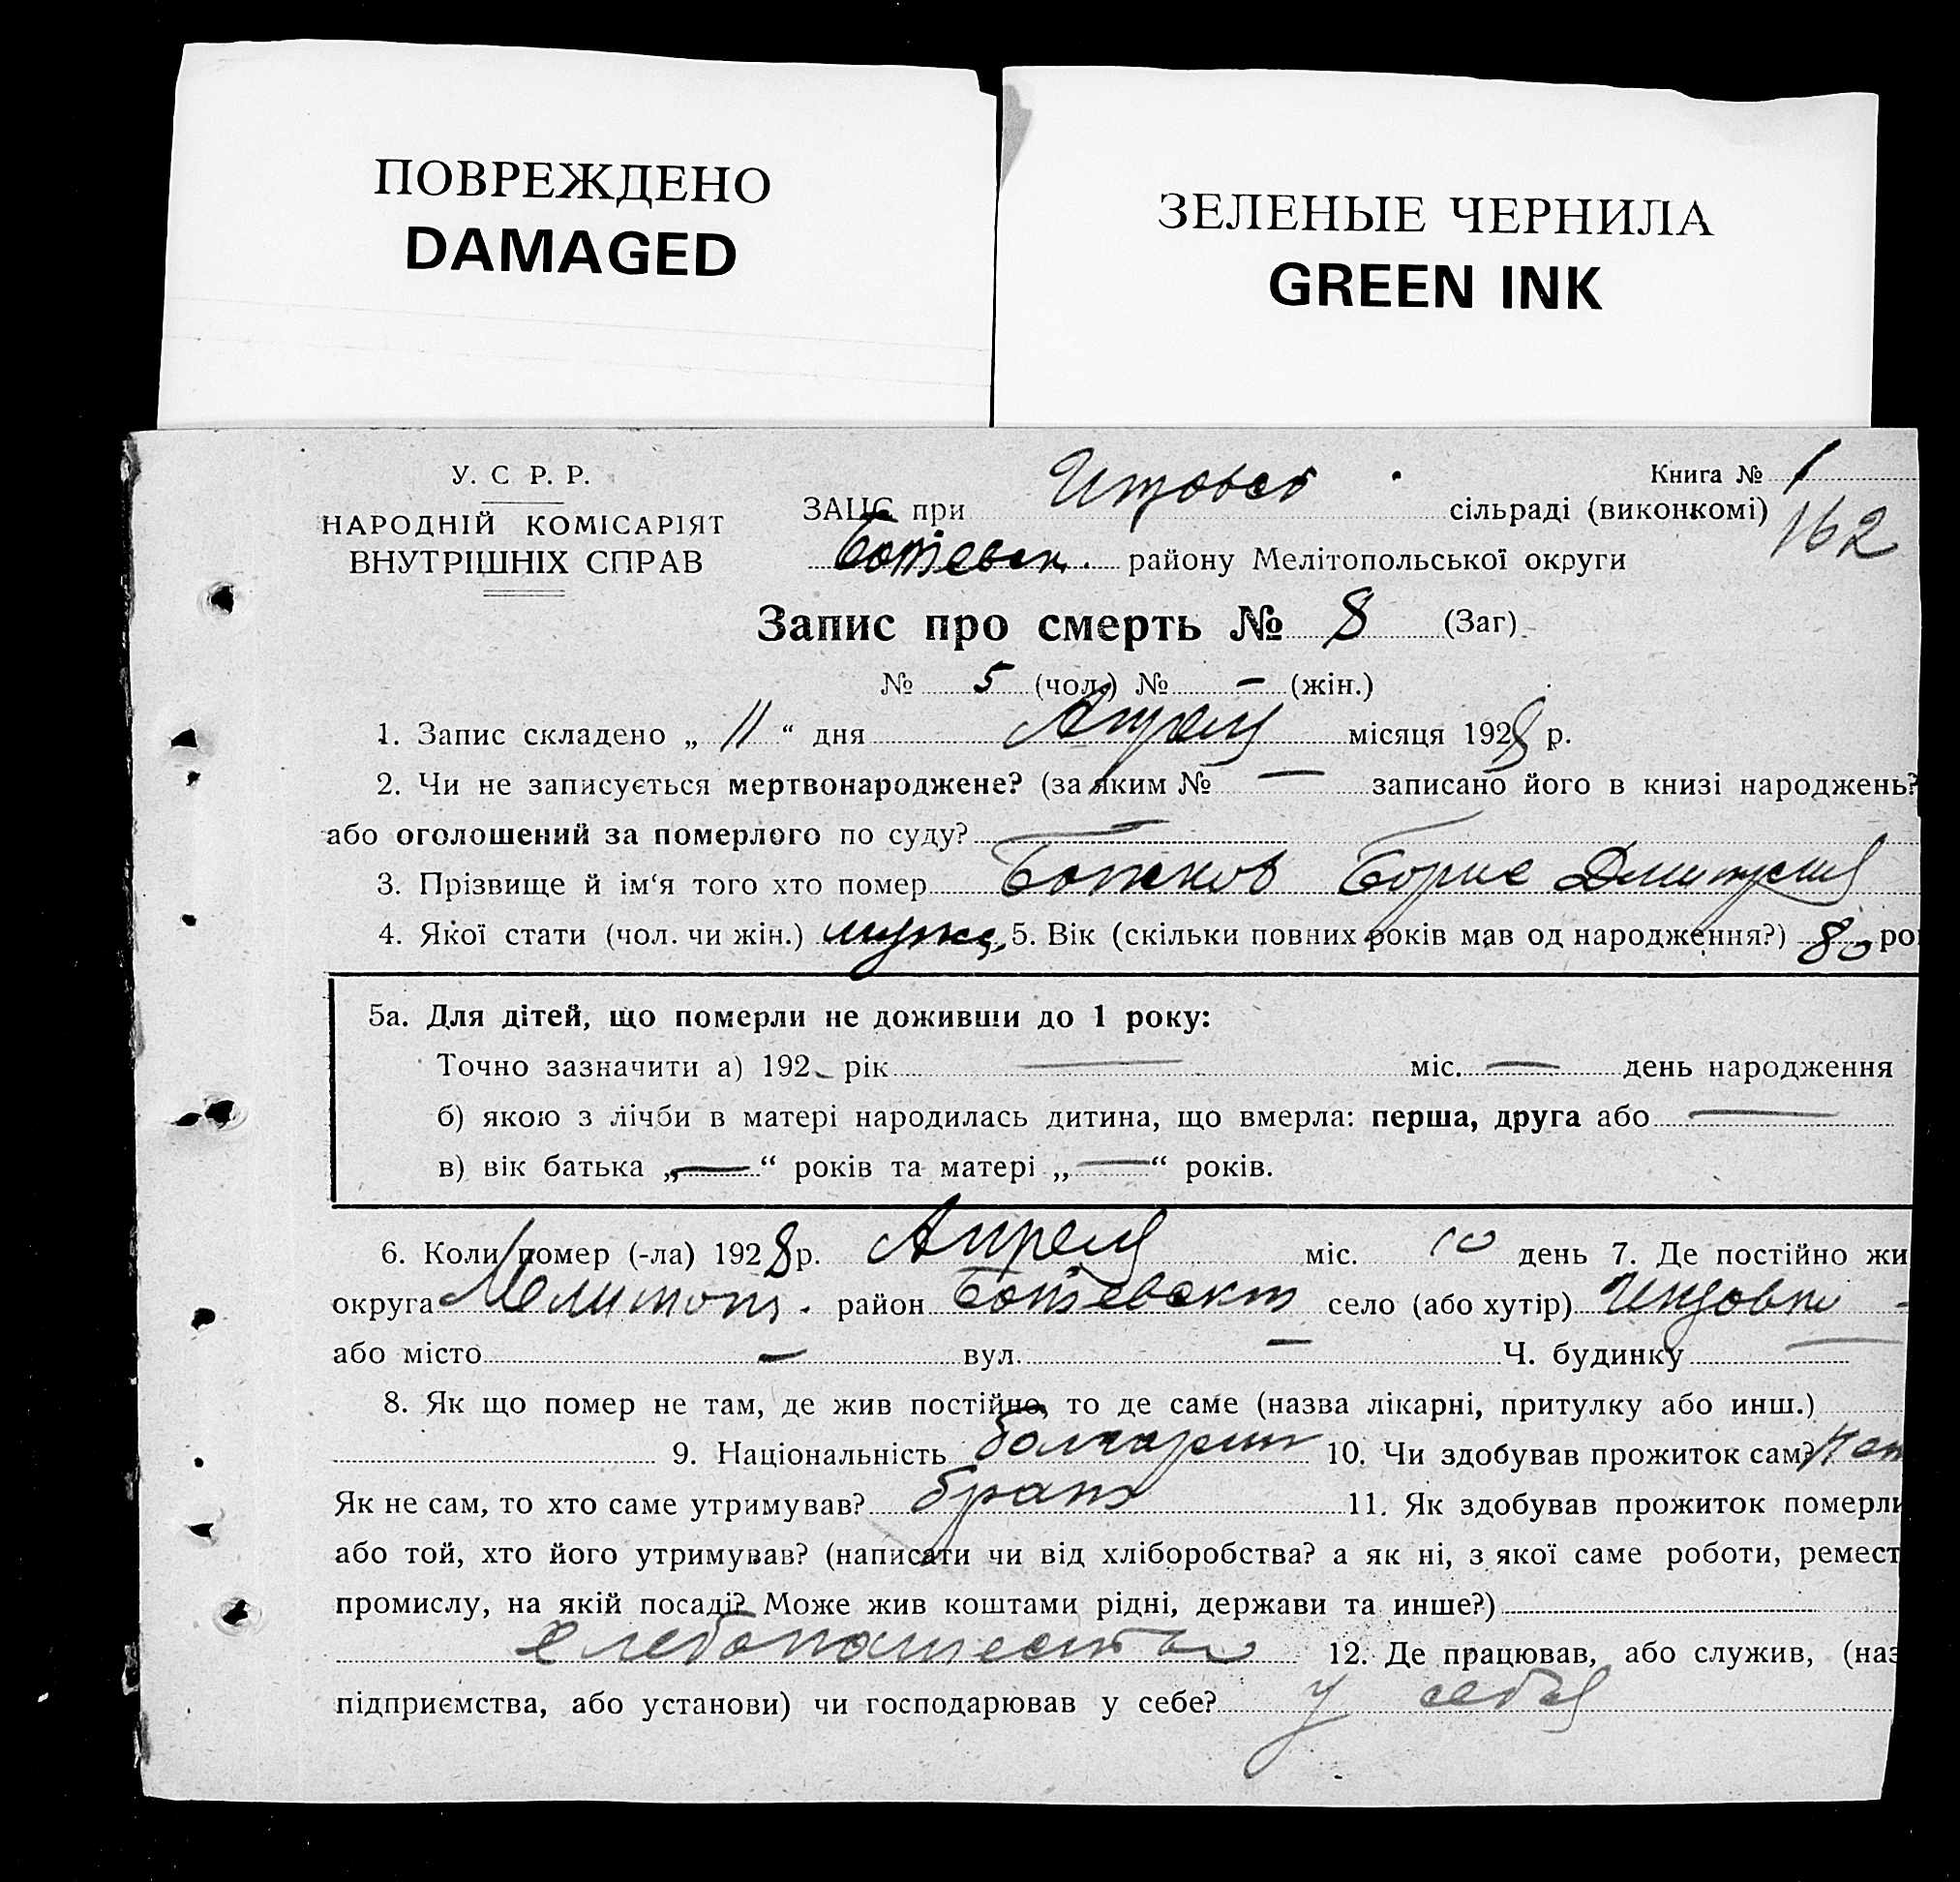 ПОВРЕЖДЕНО
DAMAGED
ЗЕЛЕНЫЕ ЧЕРНИЛА
GREEN INK
У. С Р. Р.
НАРОДНІЙ КОМІСАРІЯТ
ВНУТРІШНІХ СПРАВ
Книга № 1
162
ЗАЦС при сільраді (виконкомі)
Ботіевск. району Мелітопольської округи
Запис про смерть № 8 (Заг)
№ 5 (чол.) № — (жін.)
1. Запис складено „ 11 “ дня Апреля місяця 1928 р.
2. Чи не записується мертвонароджене? (за яким № — записано його в книзі народжень?
або оголошений за померлого по суду? —
3. Прізвище й ім‘я того хто помер Борис Дмитриев
4. Якої стати (чол. чи жін.) мужс. 5. Вік (скільки повних років мав од народження?) 80 ро
5а. Для дітей, що померли не доживши до 1 року:
Точно зазначити а) 192 рік — міс. — день народження
б) якою з лічби в матері народилась дитина, що вмерла: перша, друга або —
в) вік батька „—“ років та матері „—“ років.
6. Коли помер (-ла) 1928 р. Апреля міс. 10 день 7. Де постійно жи
округа Мелитоп. район Ботіевскт село (або хутір)
або місто — вул. — Ч. будинку —
8. Як що помер не там, де жив постійно, то де саме (назва лікарні, притулку або инш.)
9. Національність болгарин 10. Чи здобував прожиток сам? Нет
Як не сам, то хто саме утримував? брат 11. Як здобував прожиток померли
або той, хто його утримував? (написати чи від хліборобства? а як ні, з якої саме роботи, ремест
промислу, на якій посаді? Може жив коштами рідні, держави та инше?)
хлебопашество 12. Де працював, або служив, (наз
підприємства, або установи) чи господарював у себе? у себя